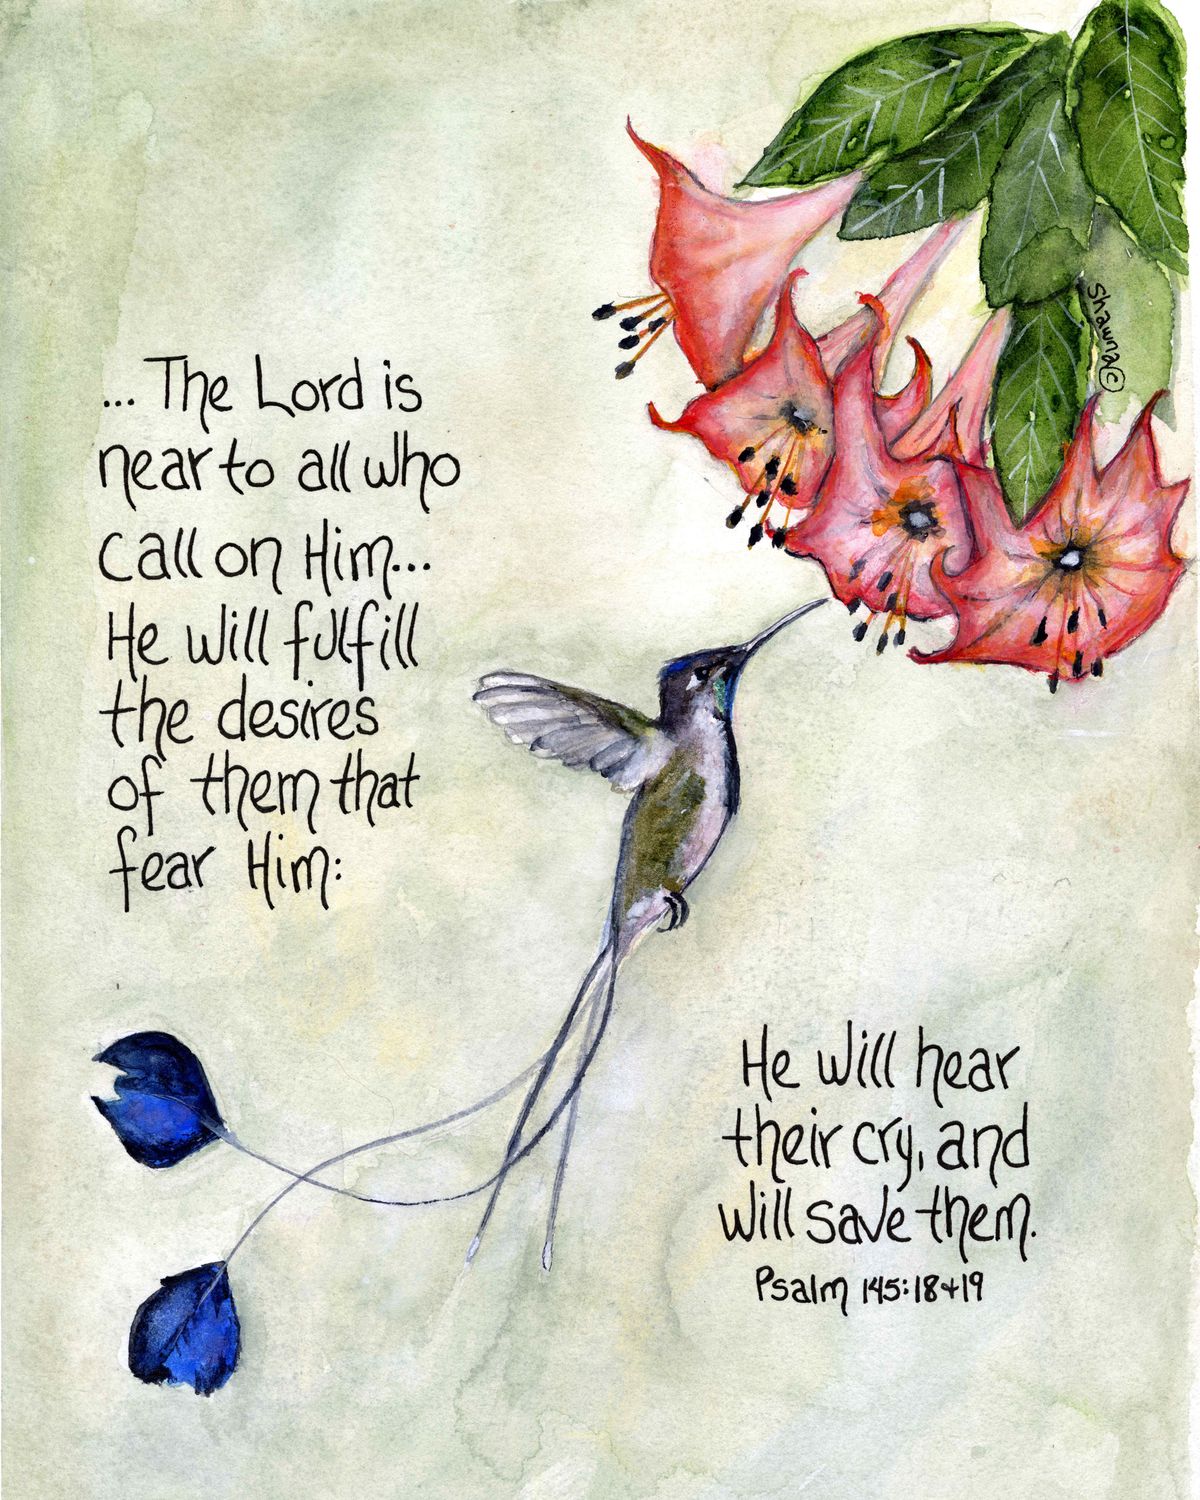 ... The Lord is
near to all who
call on Him...
He will fulfill
the desires
of them that
fear Him:
He will hear
their cry, and
will save them.
Psalm 145:18+19
Shawna ©